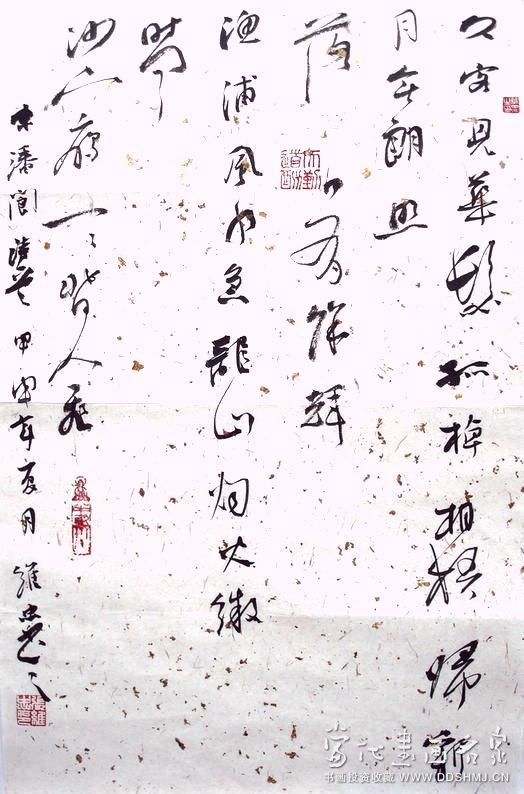 久客見華髮孤棹歸新
月無朗照
落日有餘輝
漁浦風水急龍山烟火微
時聞
沙上雁一一背人飛
宋潘閬詩 甲申年夏月 維忠書
当代书画名家
书画投资收藏 WWW.DDSHMJ.CN